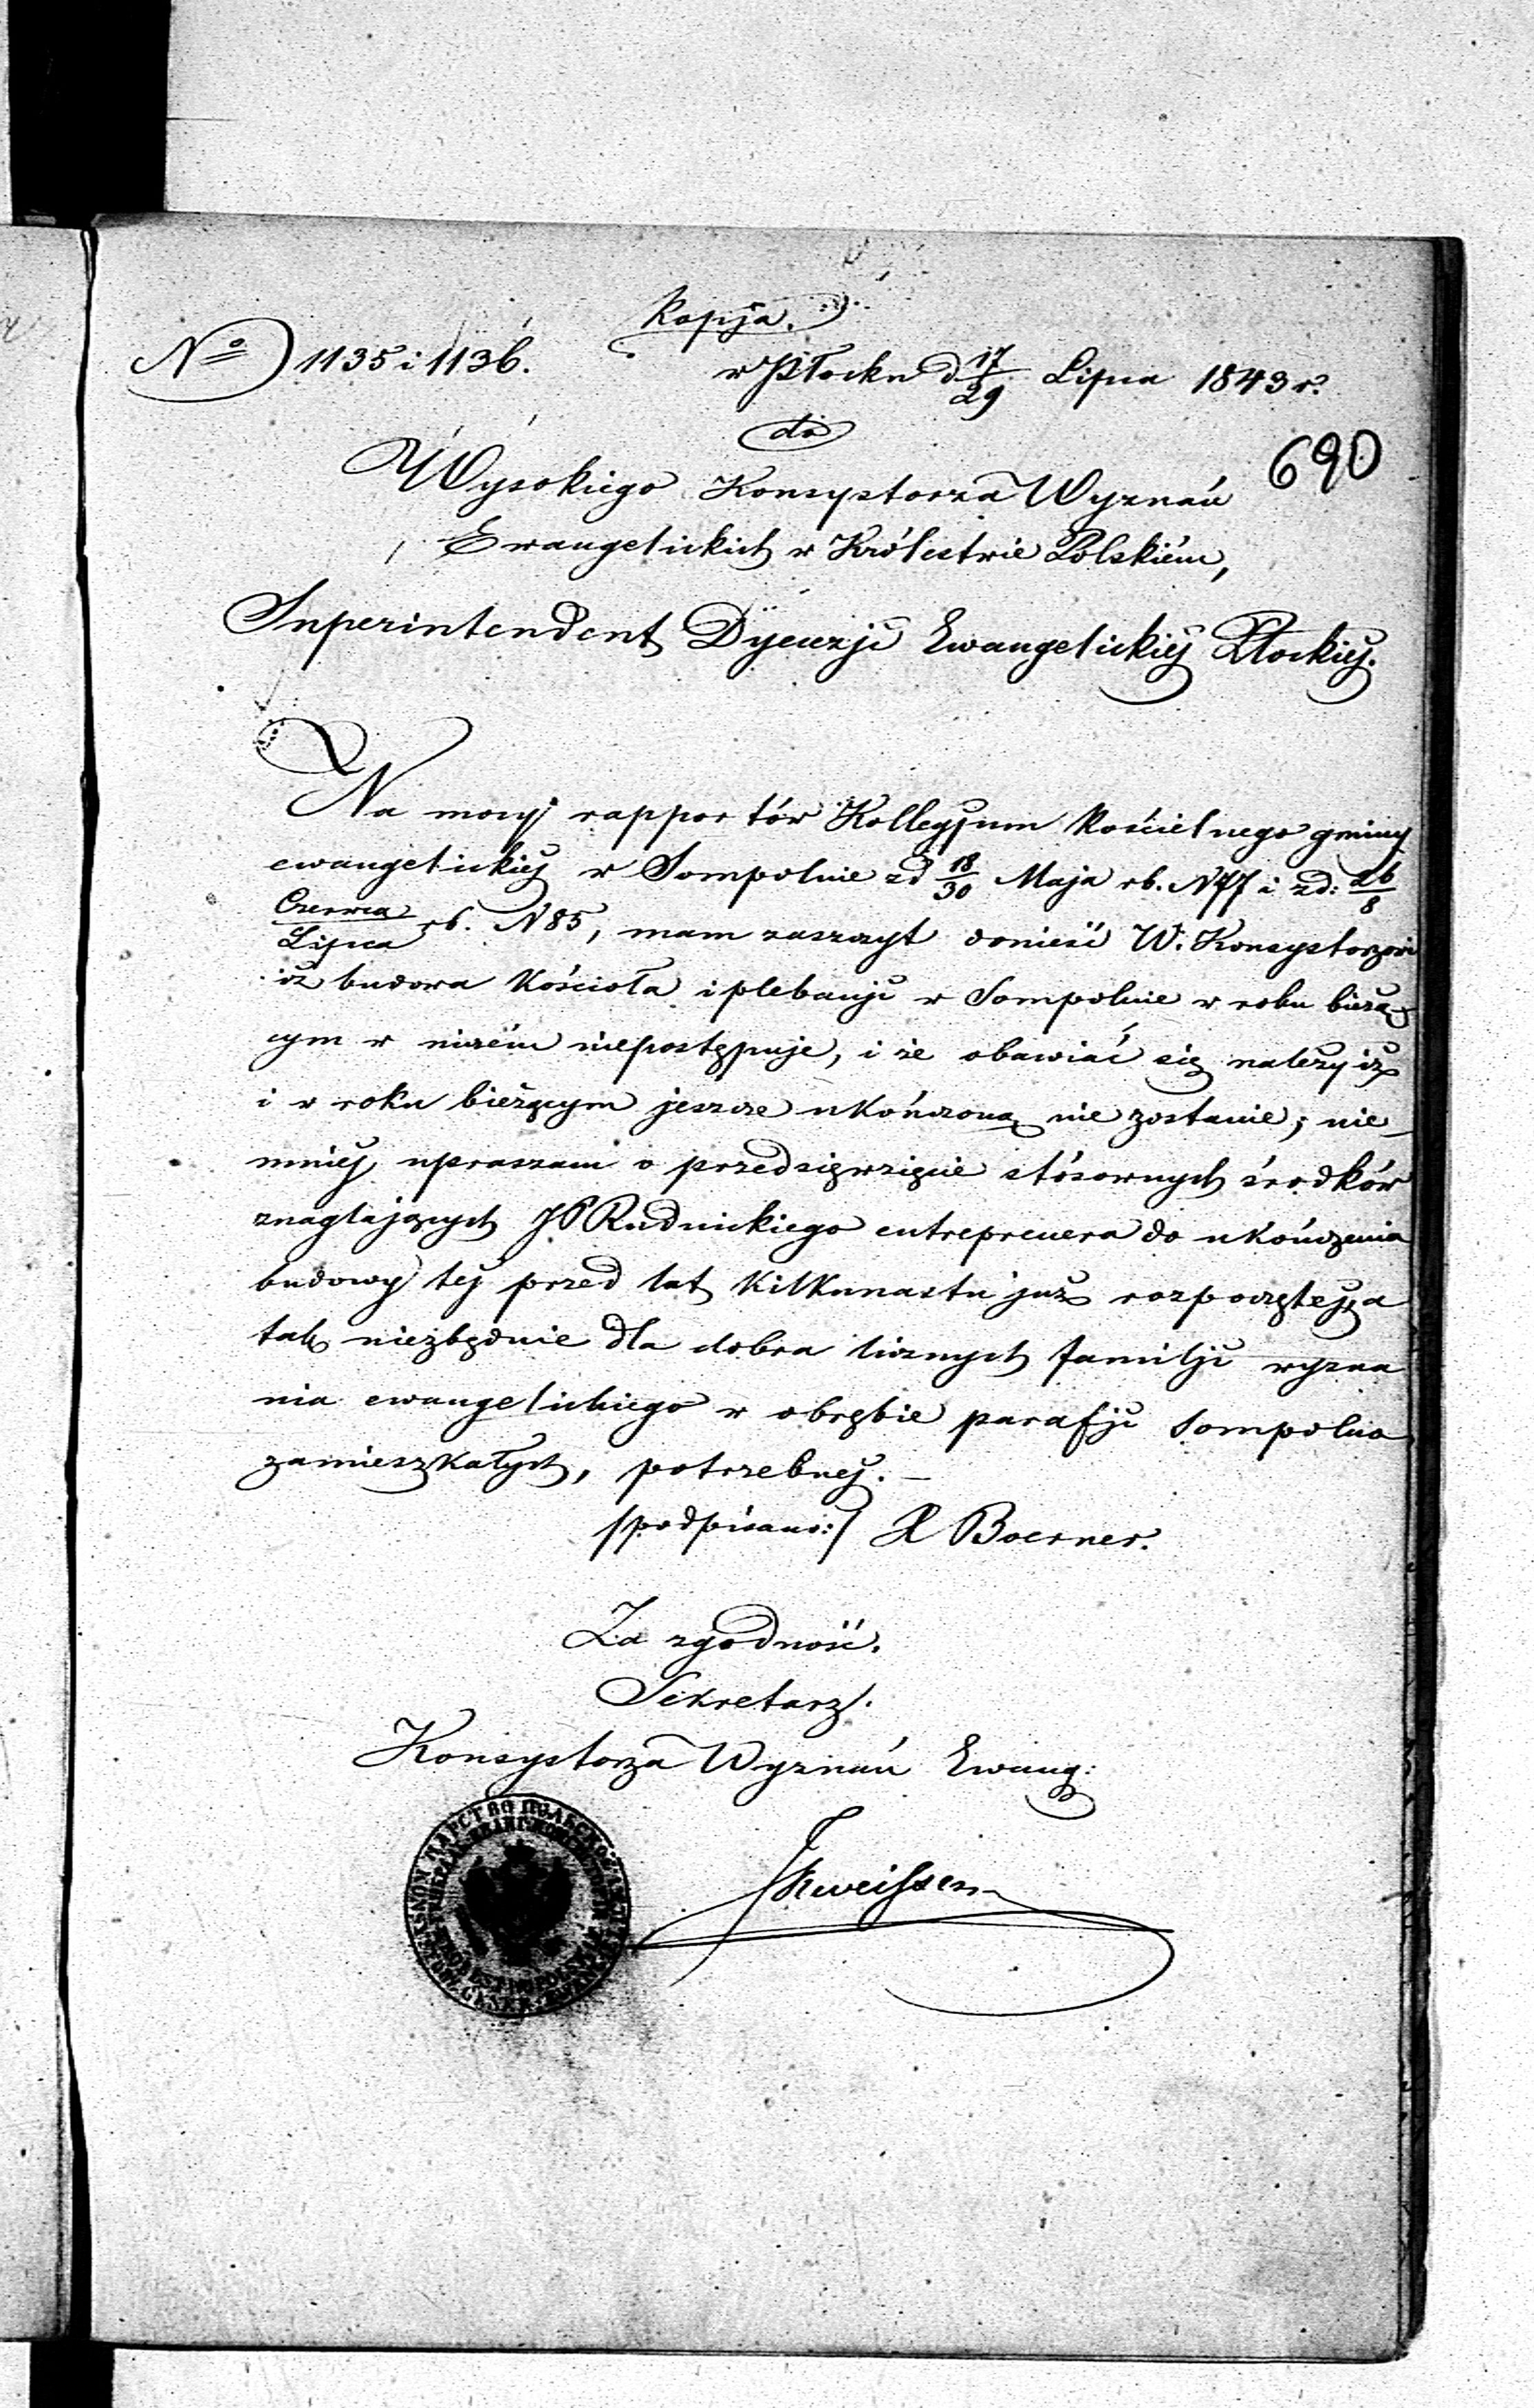 Kopija.
No 1135 i 1136.
w Płocku d 17/29 Lipca 1843 r.
do
690
Wysokiego Konsystorza Wyznań
Ewangelickich w Królestwie Polskiém,
Superintendent Dyecezji Ewangelickiej Płockiej.
Na mocy rapportów Kollegjum Kościelnego gminy
ewangelickiej w Sompolnie z d 18/30 Maja rb. N 77 i z d: 26/8
Czerwca/Lipca rb. N 85, mam zaszczyt donieść W. Konsystorzowi
iż budowa Kościoła i plebanji w Sompolnie w roku bieżą
cym w niczém niepostępuje, i że obawiać się należy iż
i w roku bieżącym jeszcze ukończoną nie zostanie; nie_
mniej upraszam o przedsięwzięcie stósownych środków
znaglających JP Rudnickiego entreprenera do ukończenia
budowy tej przed lat kilkunastu już rozpoczętej, a
tak niezbędnie dla dobra licznych familji wyzna
nia ewangelickiego w obrębie parafji Sompolno
zamieszkałych, potrzebnej. —
/podpisano:/ X Boerner.
Za zgodność.
Sekretarz.
Konsystorza Wyznań Ewang: